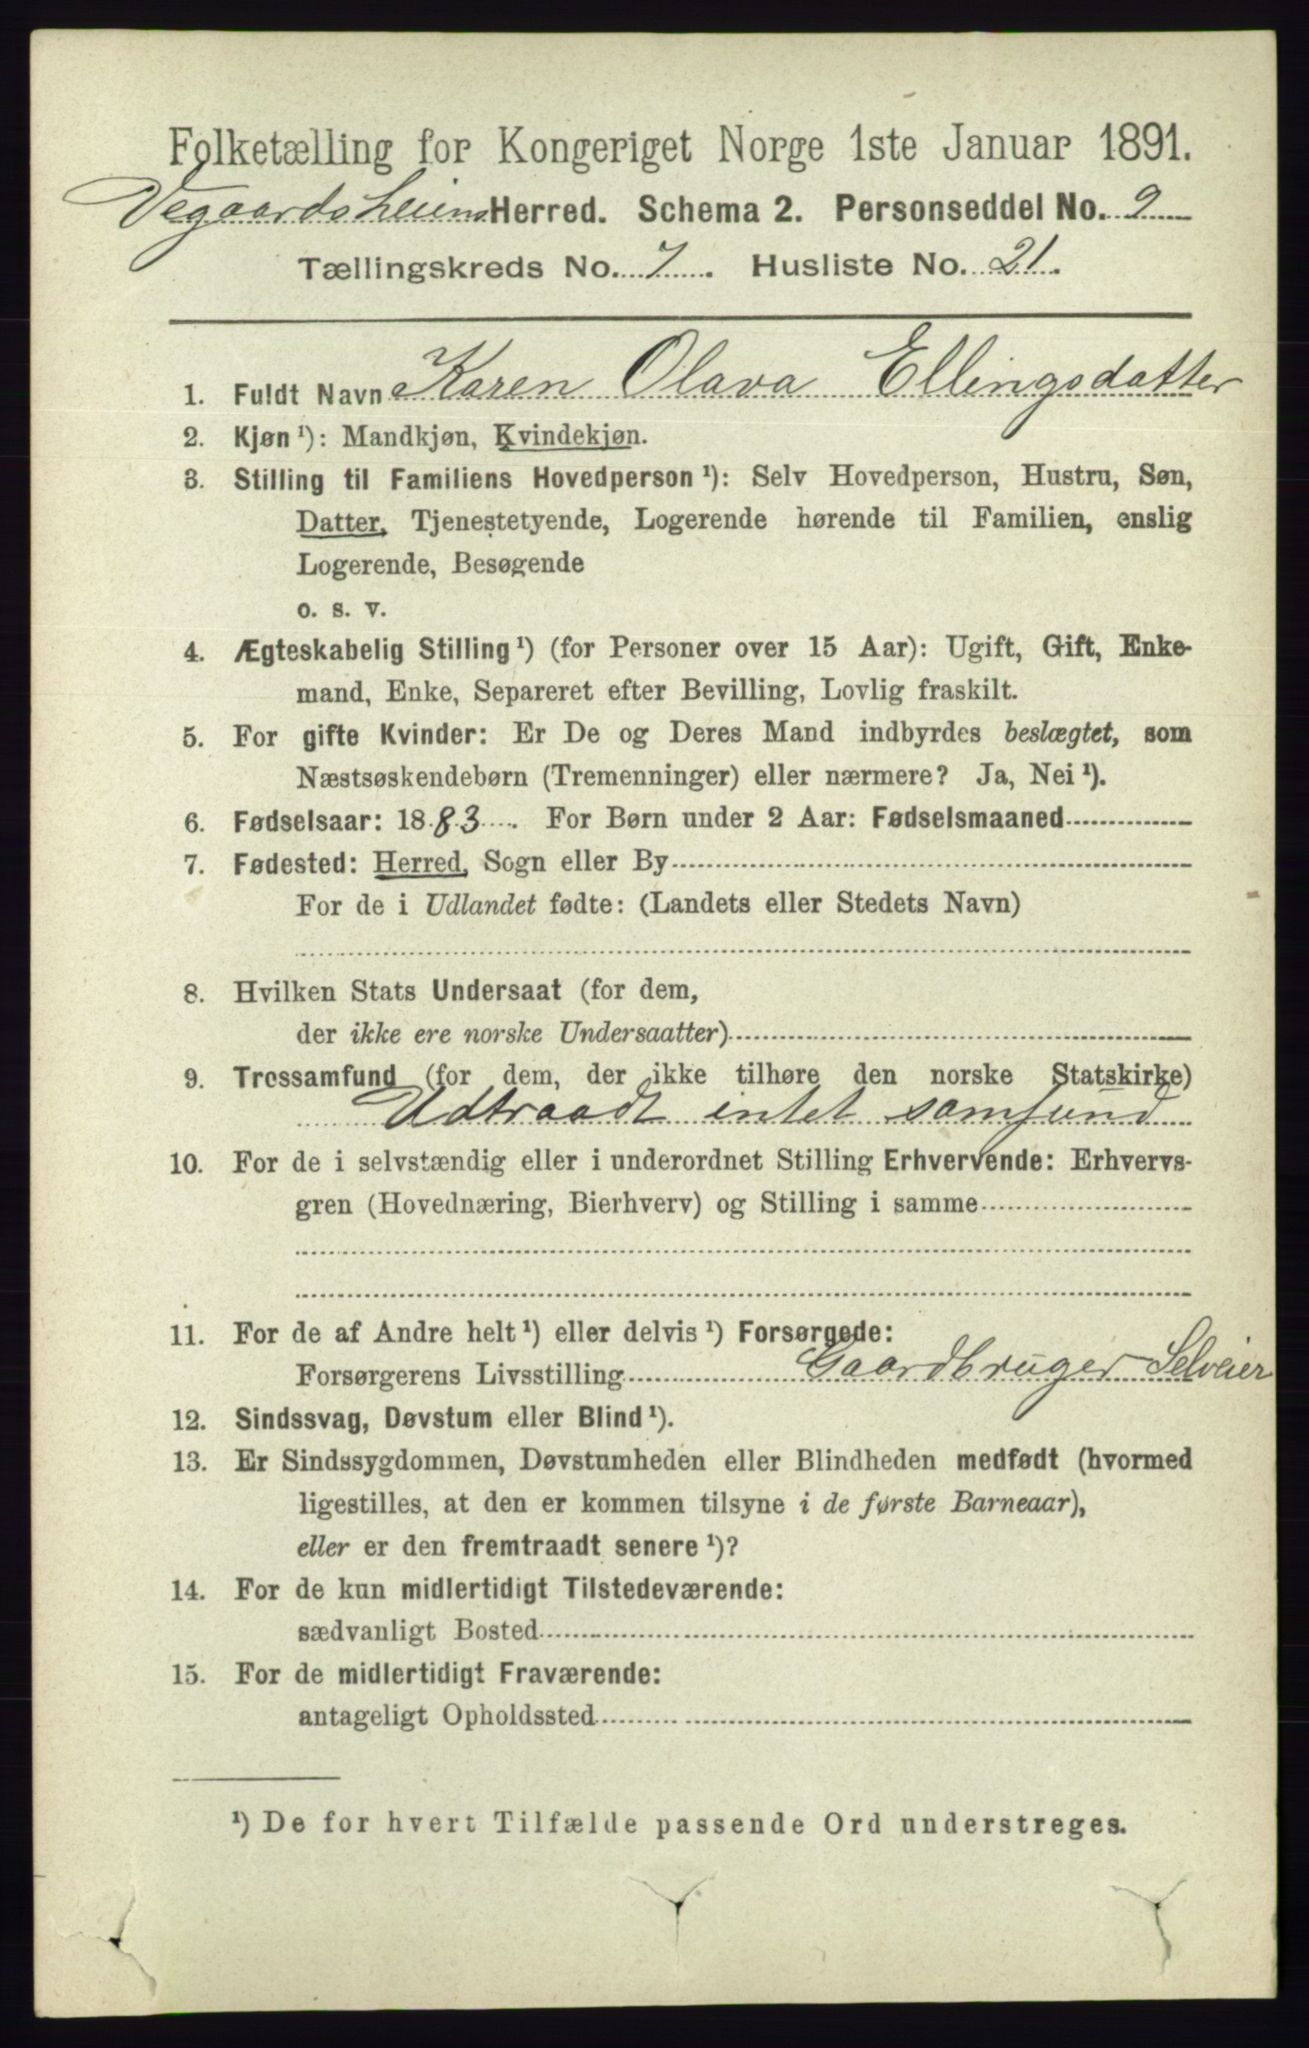 Folketælling for Kongeriget Norge 1ste Januar 1891.
Vegaardsheiens Herred. Schema 2. Personseddel No. 9
Tællingskreds No. 7. Husliste No. 21.
1. Fuldt Navn Karen Olava Ellingsdatter
2. Kjøn ¹): Mandkjøn, Kvindekjøn.
3. Stilling til Familiens Hovedperson ¹): Selv Hovedperson, Hustru, Søn,
Datter, Tjenestetyende, Logerende hørende til Familien, enslig
Logerende, Besøgende
o. s. v.
4. Ægteskabelig Stilling ¹) (for Personer over 15 Aar): Ugift, Gift, Enke-
mand, Enke, Separeret efter Bevilling, Lovlig fraskilt.
5. For gifte Kvinder: Er De og Deres Mand indbyrdes beslægtet, som
Næstsøskendebørn (Tremenninger) eller nærmere? Ja, Nei ¹).
6. Fødselsaar: 1883. For Børn under 2 Aar: Fødselsmaaned
7. Fødested: Herred, Sogn eller By
For de i Udlandet fødte: (Landets eller Stedets Navn)
8. Hvilken Stats Undersaat (for dem,
der ikke ere norske Undersaatter)
9. Trossamfund (for dem, der ikke tilhøre den norske Statskirke)
Udtraadt intet samfund
10. For de i selvstændig eller i underordnet Stilling Erhvervende: Erhvervs-
gren (Hovednæring, Bierhverv) og Stilling i samme
11. For de af Andre helt ¹) eller delvis ¹) Forsørgede:
Forsørgerens Livsstilling Gaardbruger Selveier
12. Sindssvag, Døvstum eller Blind ¹).
13. Er Sindssygdommen, Døvstumheden eller Blindheden medfødt (hvormed
ligestilles, at den er kommen tilsyne i de første Barneaar),
eller er den fremtraadt senere ¹)?
14. For de kun midlertidigt Tilstedeværende:
sædvanligt Bosted
15. For de midlertidigt Fraværende:
antageligt Opholdssted
¹) De for hvert Tilfælde passende Ord understreges.